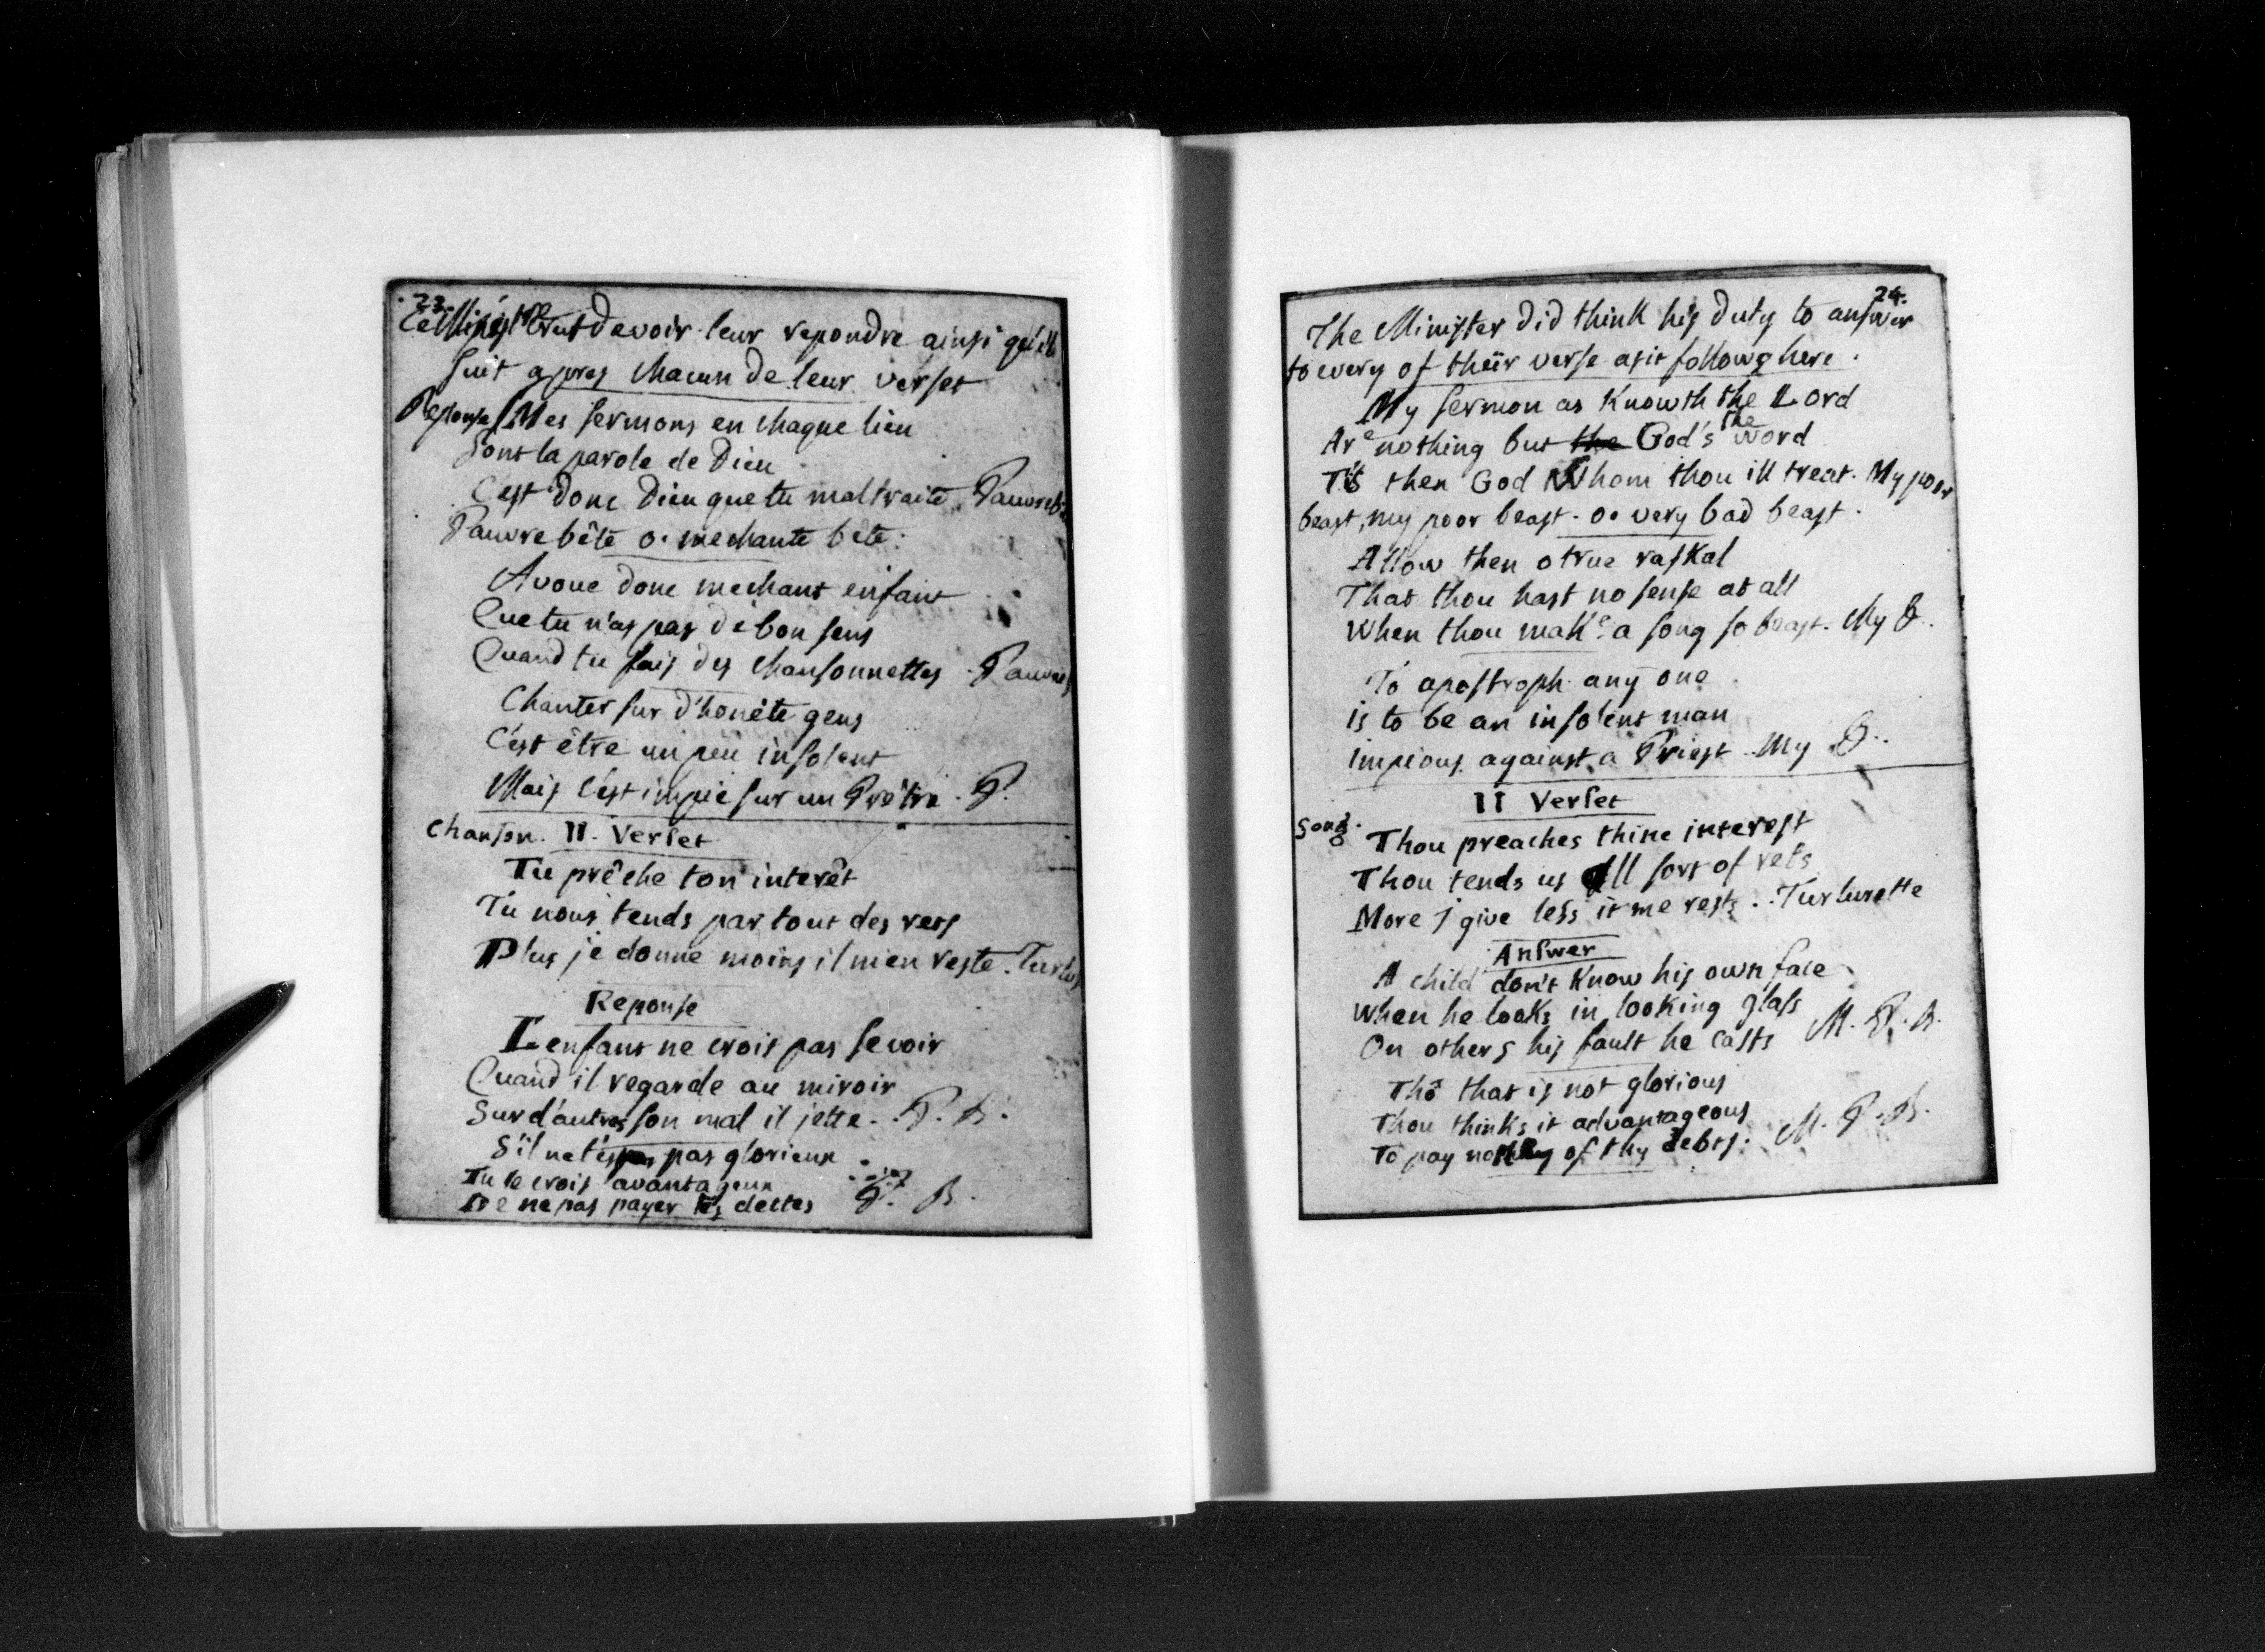 23.
Ce Ministre crut devoir leur repondre ainsi qu'il
suit apres chacun de leur verset
Reponse Mes sermons en chaque lieu
Sont la parole de Dieu
C'est donc Dieu que tu maltraite. Pauvre bê
Pauvre bête o. mechante bête.
Avoue donc mechant enfant
Que tu n'as pas de bon sens
Quand tu fais des chansonnettes. Pauvre
Chanter sur d'honête gens
C'est être un peu insolent
Mais c'est impie sur un Prêtre. P.
Chanson. II. Verset
Tu prêche ton interêt
Tu nous tends par tout des rets
Plus je donne moins il m'en reste. Turlu
Reponse
L'enfant ne crois pas se voir
Quand il regarde au miroir
Sur d'autres son mal il jette. . P. B.
S'il ne t'est pas glorieux
Tu le crois avantageux
De ne pas payer tes dettes P. B.
24.
The Minister did think his duty to answer
to every of theïr verse as it follows here.
My sermon as Knowth the Lord
Are nothing but the God's the word
T'is then God Whom thou ill treat. My poor
beast, my poor beast. o. very bad beast.
Allow then o true raskal
That thou hast no sense at all
When thou make a song so beast. My B.
To apostroph any one
is to be an insolent man
impious against a Priest. My B..
II Verset
Song. Thou preaches thine interest
Thou tends us All sort of rets
More J give less it me rests.. Turlurette
Answer
A child don't Know his own face
When he looks in looking glass
On others his fault he casts M. P. B.
Tho that is not glorious
Thou thinks it advantageous
To pay nothing of thy debts: M. P. B.